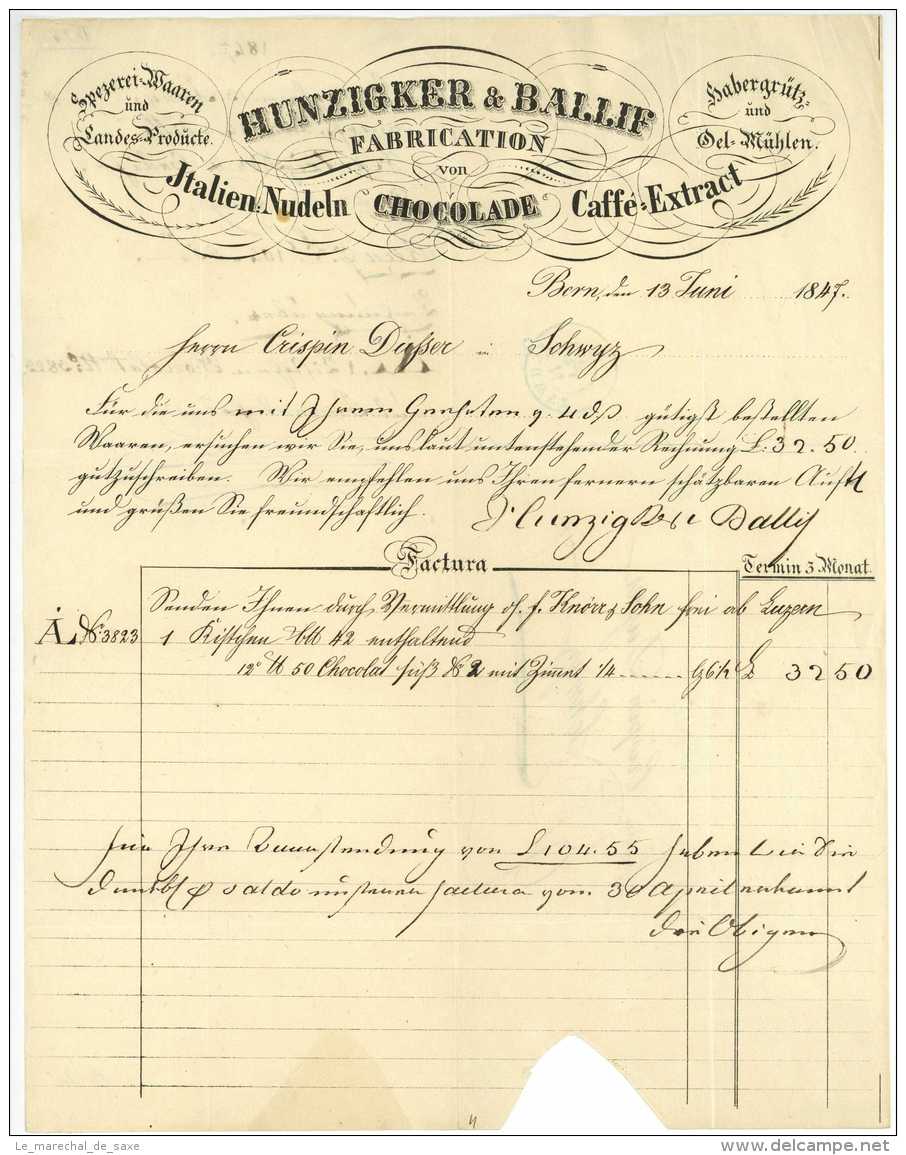 Spezerei-Waaren
und
Landes-Producte.
HUNZIGKER & BALLIF
FABRICATION
von
Jtalien: Nudeln CHOCOLADE Caffé-Extract
Habergrütz-
und
Oel-Mühlen.
Bern, den 13 Juni 1847.
Herrn Crispin Dußer in Schwyz
Für die uns mit Ihrem Geehrten v. 4 dß gütigst bestellten
Waaren, ersuchen wir Sie, uns laut untenstehender Rechnung L: 32. 50
gutzuschreiben. Wir empfehlen uns Ihren fernern schätzbaren
und grüßen Sie freundschaftlich. Hunzigker & Ballif
Factura Termin 3 Monat.
Senden Ihnen durch Vermittlung frei ab Luzern
No. 3823 1 Kistchen 42 enthaltend
50 Chocolat süß No 2 mit Zimmt 1/4 L 32 50
für Ihre Baarsendung von L 104. 55 haben wir Sie
saldo unserer Factura vom 30 April erkannt
Die Obigen
Le_marechal_de_saxe
delcampe.net